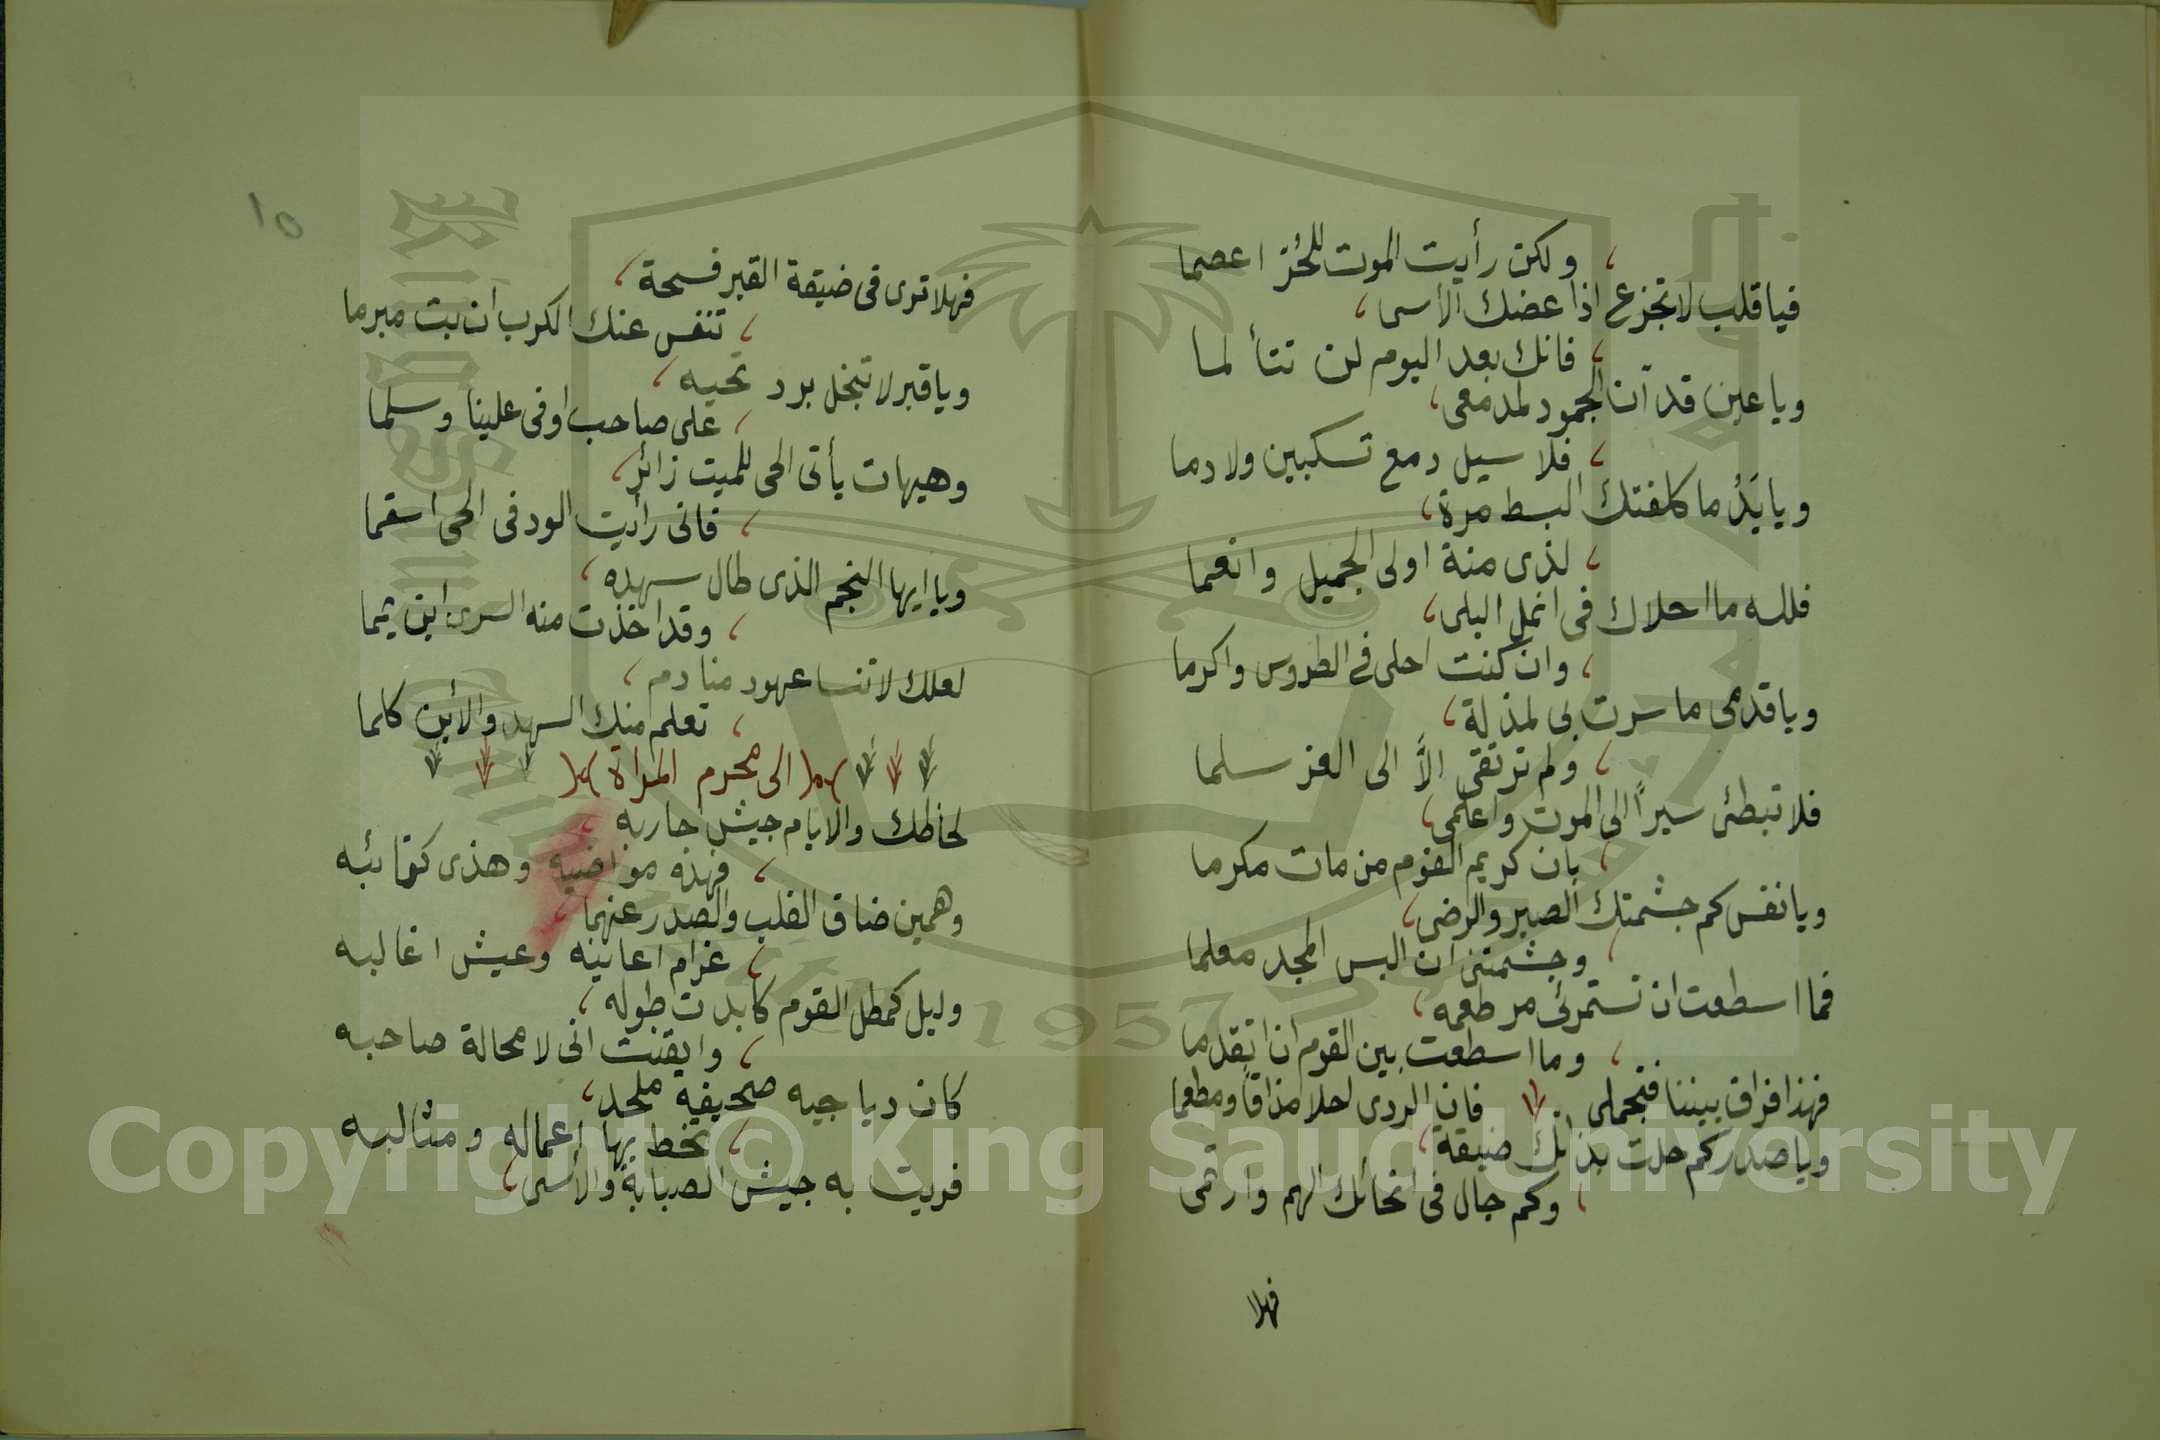 ولكن رأيت الموت للحُرّ اعصما
فيا قلب لا تجزع اذا عضك الاسى
فانك بعد اليوم لن تتألما
ويا عين قد آن الجمود لمدمعى
فلا سيل دمع تسكبين ولا دما
ويا يَدُ ما كلفتك البسط مرة
لذى منة اولى الجميل وانعما
فلله ما احلاك فى انمل البلى
وان كنت احلى فى الطروس واكرما
ويا قدمى ما سرت بى لمذلة
ولم ترتقى الاَّ الى العز سلما
فلا تبطئى سيراً الى الموت واعلمى
بان كريم القوم من مات مكرما
ويا نفس كم جشمتك الصبر والرضى
وجشمتنى ان البس المجد معلما
فما اسطعت ان تستمرئى مر طعمه
وما اسطعت بين القوم ان اتقدما
فهذا فراق بيننا فتجملى فان الردى احلا مذاقا ومطعما
ويا صدر كم حلت بذاتك ضيقة
وكم جال فى انحائك الهم وارتمى
فهلا
١٥
فهلا ترى فى ضيقة القبر فسحة
تنفس عنك الكرب ان بت مبرما
ويا قبر لا تبخل برد تحيه
على صاحب اوفى علينا وسلما
وهيهات يأتى الحى للميت زائر
فانى رأيت الود فى الحى اسقما
ويا ايها النجم الذى طال سهده
وقد اخذت منه السرى اين يمما
لعلك لا تنسا عهود منادم
تعلم منك السهد والأين كلما
الى محرم المراة
لحاظك والايام جيش احاربه
فهذه مواضيه وهذى كتائبه
وهمين ضاق القلب والصدر عنهما
غرام اعانيه وعيش اغالبه
وليل كمطل القوم كابدت طوله
وايقنت انى لا محالة صاحبه
كان دياجيه صحيفة ملحد
تخط بها اعماله ومثالبه
فريت به جيش الصبابة والأسى
Copyright © King Saud University
1957